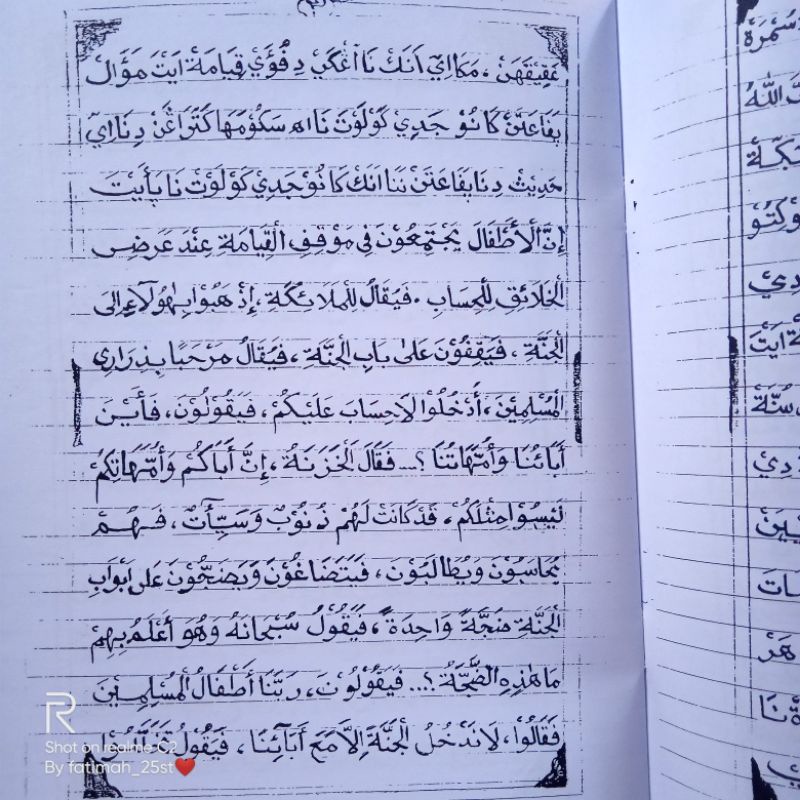 عَقِيْقَهَنْ، مَكَاايَ اَنَكْ نَا اَڠْكَيْ دِ فُؤَيْ قِيَامَةْ اَيَتْ مَؤَالْ
بِفَاعَتَنْ كَانُوْ جَدِيْ كَوْلَوَتْ نَا اه سَكُوْمَهَا كَتَرَاڠَنْ دِنَا اَيْ
حَدِيْثْ دِنَا يَفَاعَتَنْ نَنَا اَنَكْ كَانُوْ جَدِيْ كَوْلَوَتْ نَا يَأَيْتَ
إِنَّ الْأَطْفَالَ يَجْتَمِعُوْنَ فِى مَوْقِفِ الْقِيَامَةِ عِنْدَ عَرَضِ
الْخَلَائِقِ لِلْحِسَابِ. فَيُقَالُ لِلْمَلَائِكَةِ، إِذْهَبُوْا بِهٰؤُلَاءِ إِلَى
الْجَنَّةِ، فَيَقِفُوْنَ عَلَى بَابِ الْجَنَّةِ، فَيُقَالُ مَرْحَبًا بِذِرَارِى
الْمُسْلِمِيْنَ، أُدْخُلُوْا لَاحِسَابَ عَلَيْكُمْ، فَيَقُوْلُوْنَ، فَأَيْنَ
أَبَائُنَا وَأُمَّهَاتُنَا؟... فَقَالَ الْخَزَنَةُ، إِنَّ أَبَاكُمْ وَأُمَّهَاتِكُمْ
لَيْسُوْا مِثْلَكُمْ، قَدْ كَانَتْ لَهُمْ ذُنُوْبٌ وَسَيِّأَتٌ، فَهُمْ
يُحَاسَبُوْنَ وَيُطَالَبُوْنَ، فَيَتَضَاغُوْنَ وَيَضَجُّوْنَ عَلَى اَبْوَابِ
الْجَنَّةِ ضَجَّةً وَاحِدَةً، فَيَقُوْلُ سُبْحَانَهُ وَهُوَ أَعْلَمُ بِهِمْ
مَا هٰذِهِ الضَّجَّةُ؟... فَيَقُوْلُوْنَ، رَبَّنَا أَطْفَالُ الْمُسْلِمِيْنَ
فَقَالُوْا، لَانَدْخُلُ الْجَنَّةَ إِلَّا مَعَ أَبَائِنَا، فَيَقُوْلُ
سُمْرَةْ
اللّٰهُ
سُنَّةْ
Shot on realme C2
By fatimah_25st❤️